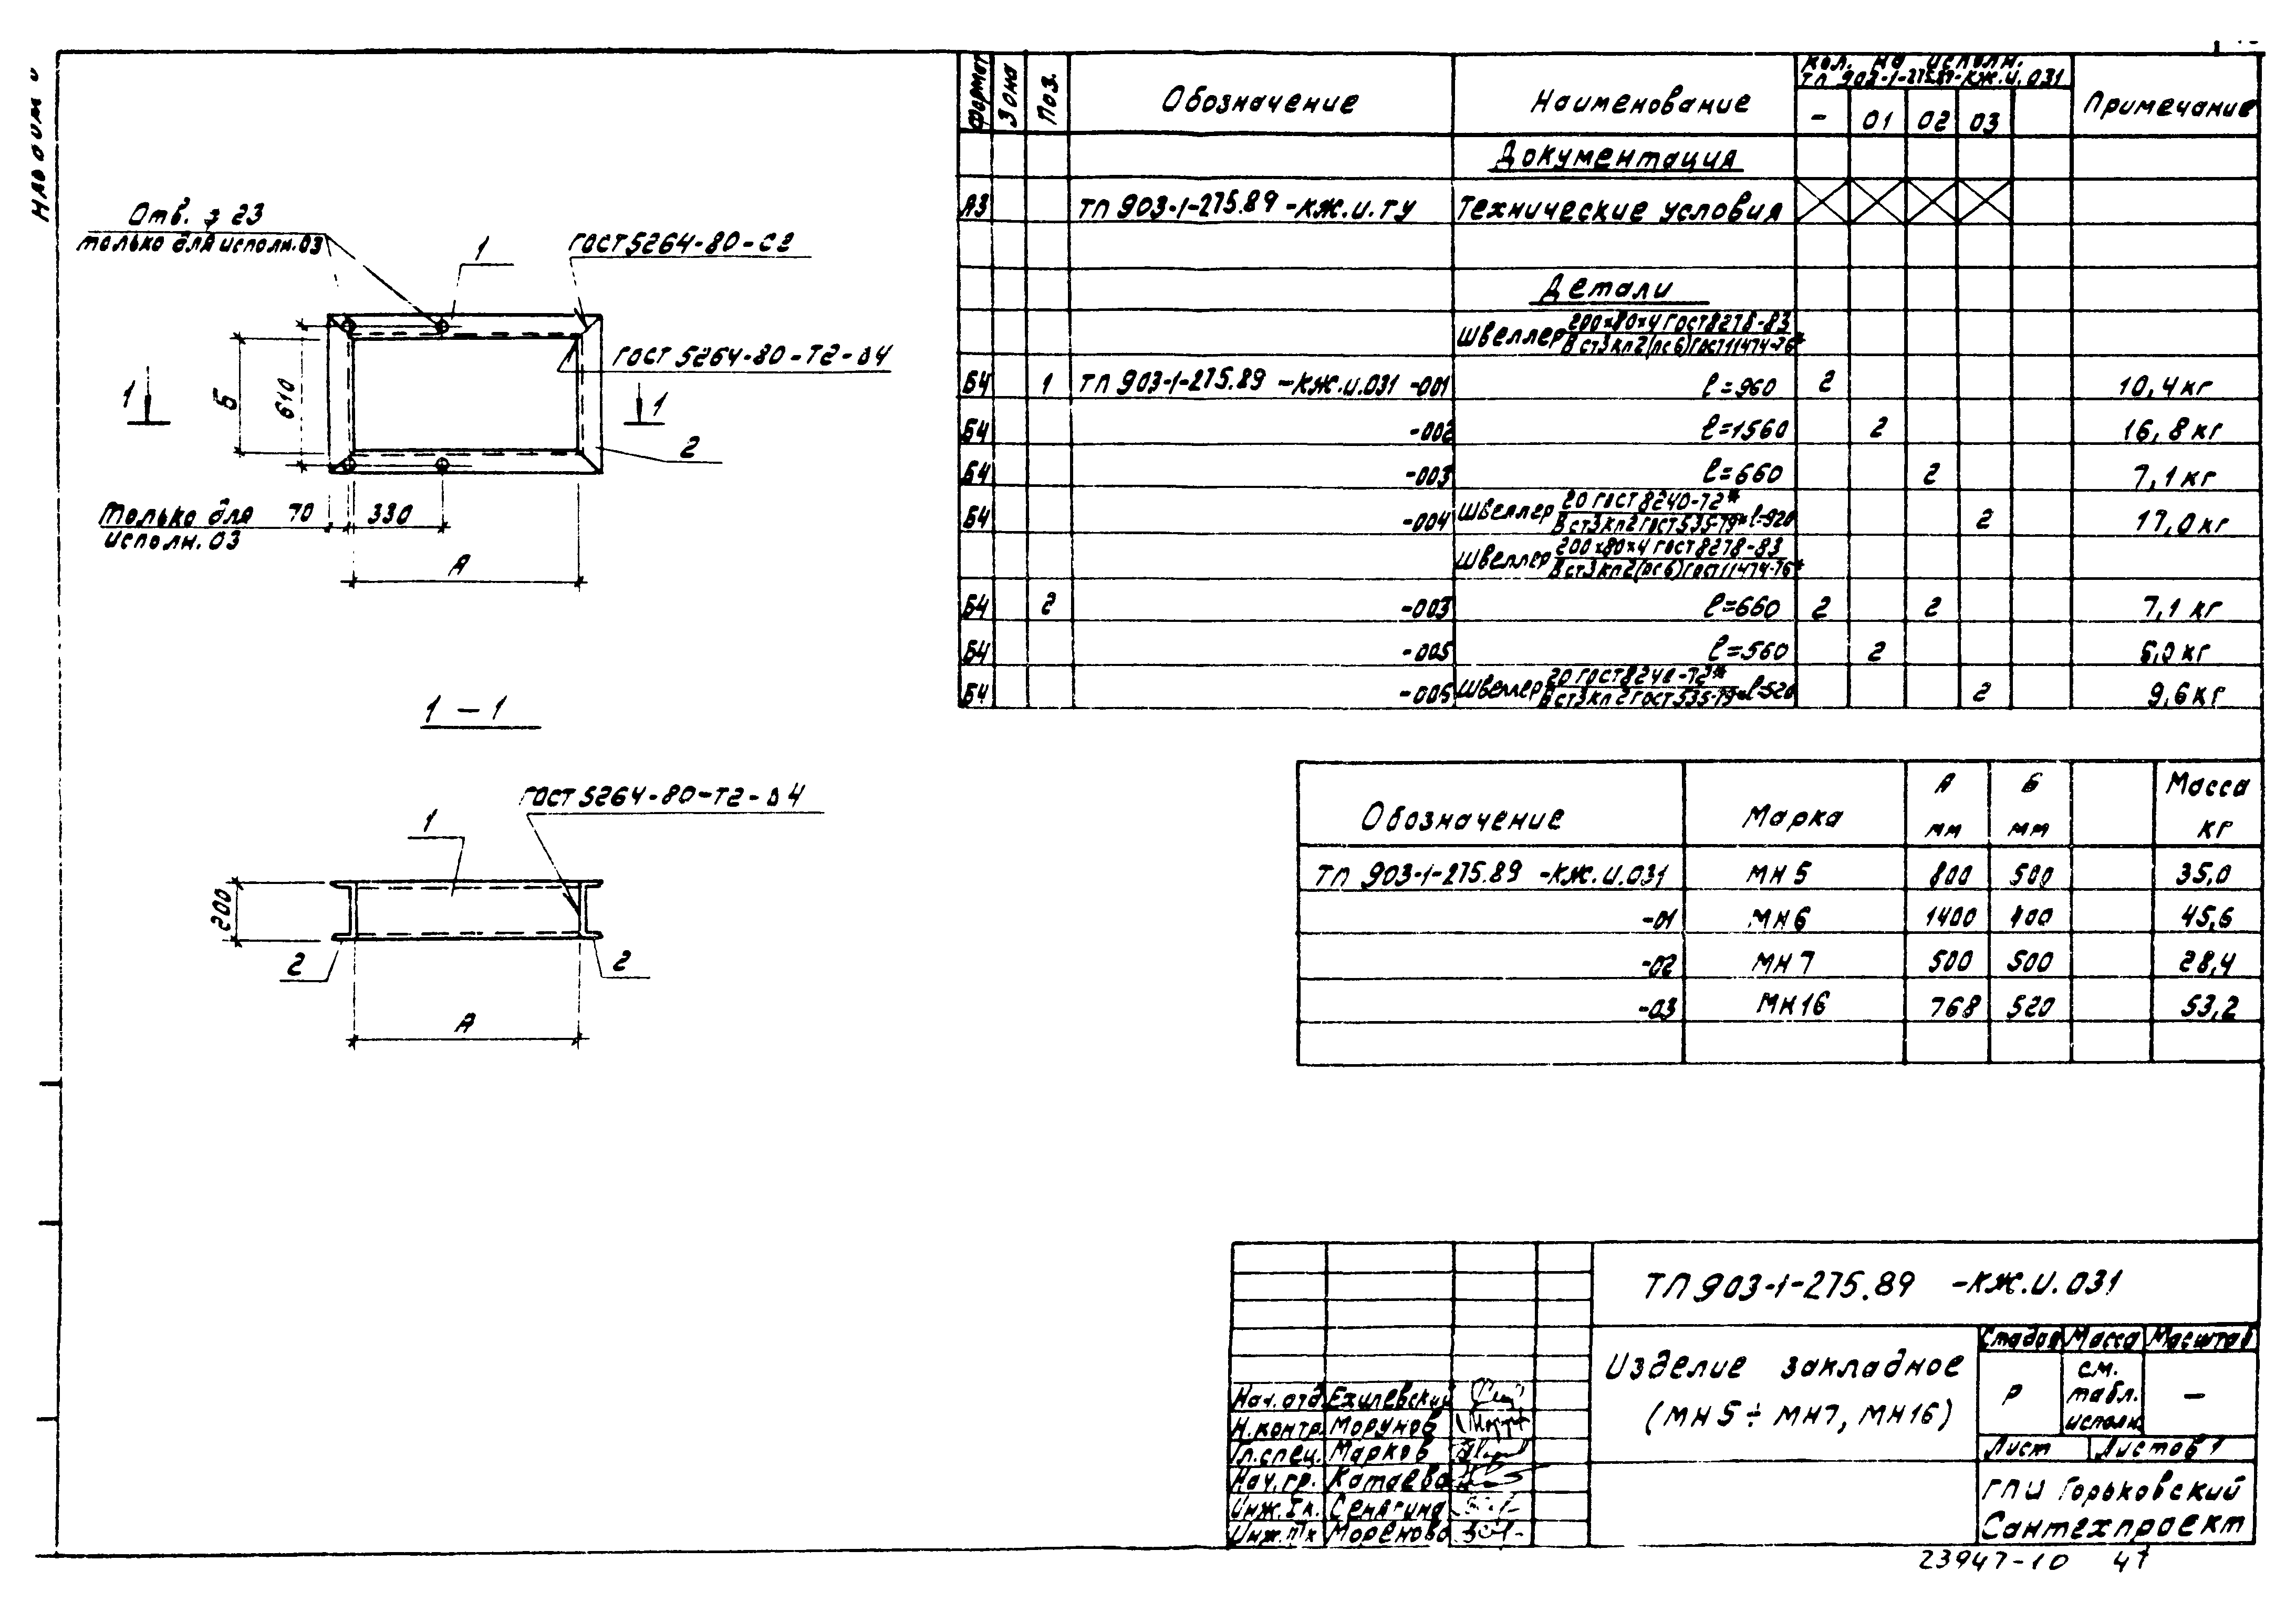 Отв. ⌀ 23
только для исполн. 03
1
ГОСТ 5264-80-С2
ГОСТ 5264-80-Т2-⊿4
1
Б
610
1
2
только для
исполн. 03
70
330
А
1 – 1
ГОСТ 5264-80-Т2-⊿4
1
200
2
2
А
Формат
Зона
Поз.
Обозначение
Наименование
кол. на исполн.
ТП 903-1-275.89-КЖ.И.031
Примечание
– 01 02 03
Документация
А3 ТП 903-1-275.89 -КЖ.И.ТУ Технические условия
Детали
Швеллер 200×80×4 ГОСТ 8278-83
В ст3кп2(пс6) ГОСТ 11474-76*
Б4 1 ТП 903-1-275.89 -КЖ.И.031 -001 ℓ=960 2 10,4 кг
Б4 -002 ℓ=1560 2 16,8 кг
Б4 -003 ℓ=660 2 7,1 кг
Б4 -004 Швеллер 20 ГОСТ 8240-72*
В ст3кп2 ГОСТ 535-79* ℓ=920 2 17,0 кг
Швеллер 200×80×4 ГОСТ 8278-83
В ст3кп2(пс6) ГОСТ 11474-76*
Б4 2 -003 ℓ=660 2 2 7,1 кг
Б4 -005 ℓ=560 2 6,0 кг
Б4 Швеллер 20 ГОСТ 8240-72*
В ст3кп2 ГОСТ 535-79* ℓ=520 2 9,6 кг
Обозначение Марка А мм Б мм Масса кг
ТП 903-1-275.89 -КЖ.И.031 МН5 800 500 35,0
-01 МН6 1400 400 45,6
-02 МН7 500 500 28,4
-03 МН16 768 520 53,2
ТП 903-1-275.89 -КЖ.И.031
Изделие закладное
(МН5 ÷ МН7, МН16)
Стадия Масса Масштаб
Р
см.
табл.
исполн.
–
Лист Листов 1
ГПИ Горьковский
Сантехпроект
Нач. отд. Ехилевский
Н.контр. Морунов
Гл.спец. Марков
Нач.гр. Катаева
Инж. Iк. Сенягина
Инж. Моренова
23947-10 41